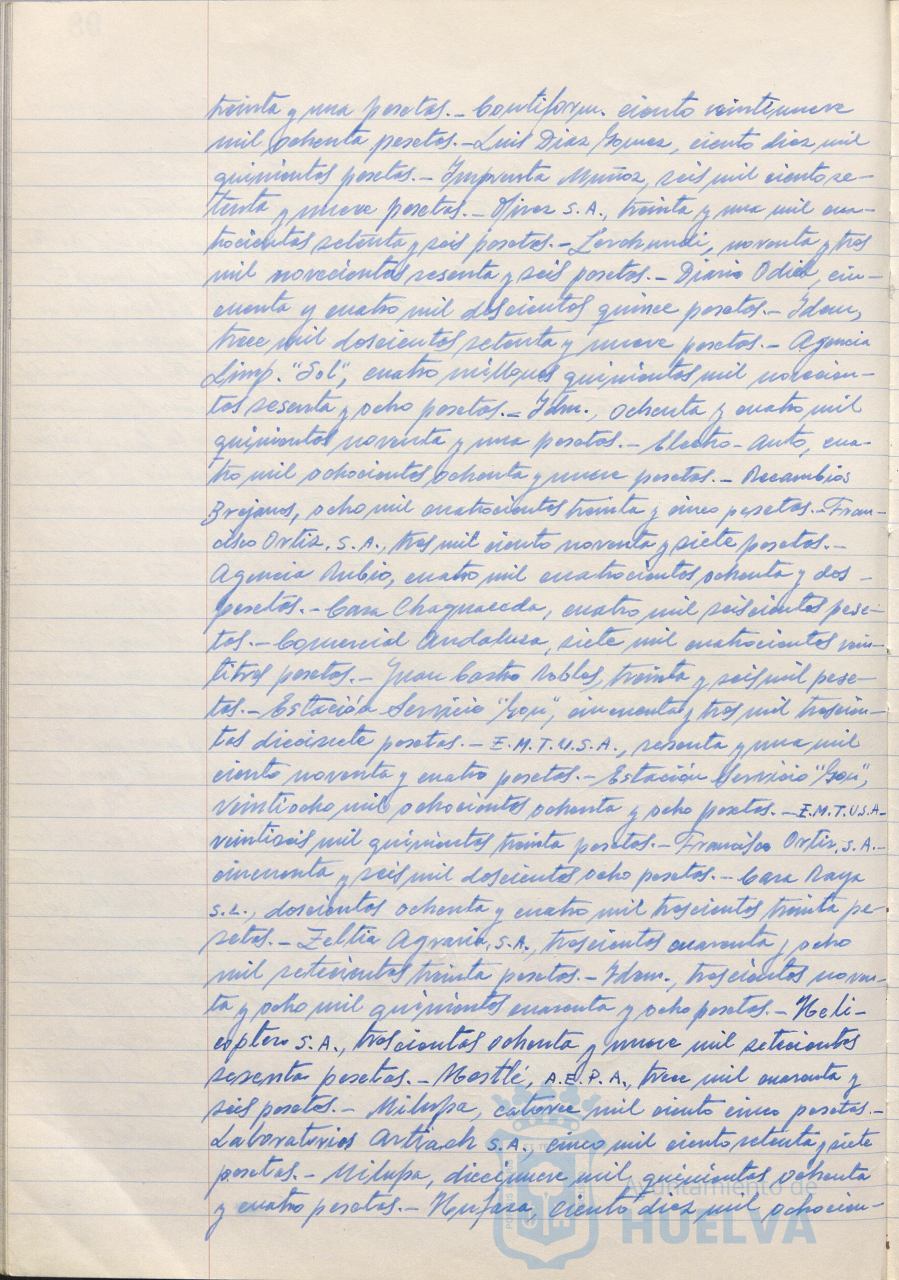 treinta y una pesetas.- Contiform. ciento veintinueve
mil ochenta pesetas.- Luis Diaz Gomez, ciento diez mil
quinientas pesetas.- Imprenta Muñoz, seis mil ciento se-
tenta y nueve pesetas.- Ofivez S.A., treinta y una mil cua-
trocientas setenta y seis pesetas.- Lerchundi, noventa y tres
mil novecientas sesenta y seis pesetas.- Diario Odiel, cin-
cuenta y cuatro mil doscientos quince pesetas.- Idem,
trece mil doscientos setenta y nueve pesetas.- Agencia
Limp. "Sol", cuatro millones quinientas mil novecien-
tos sesenta y ocho pesetas.- Idm., ochenta y cuatro mil
quinientos noventa y una pesetas.- Electro-Auto, cua-
tro mil ochocientos ochenta y nueve pesetas.- Recambios
Brejanos, ocho mil cuatrocientos treinta y cinco pesetas.- Fran-
cisco Ortiz, S.A., tres mil ciento noventa y siete pesetas.-
Agencia Rubio, cuatro mil cuatrocientos ochenta y dos -
pesetas.- Casa Chaguaceda, cuatro mil seiscientos pese-
tas.- Comercial Andaluza, siete mil cuatrocientos vein-
titres pesetas.- Juan Castro Robles, treinta y seis mil pese-
tas.- Estación Servicio "Gou", cincuenta y tres mil trescien-
tos diecisiete pesetas.- E.M.T.U.S.A., sesenta y una mil
ciento noventa y cuatro pesetas.- Estación Servicio "Gou",
veintiocho mil ochocientos ochenta y ocho pesetas.- E.M.T.U.S.A.-
veintiseis mil quinientos treinta pesetas.- Francisco Ortiz, S.A.-
cincuenta y seis mil doscientos ocho pesetas.- Casa Raya
S.L., doscientos ochenta y cuatro mil trescientos treinta pe-
setas.- Zeltia Agraria, S.A., trescientos cuarenta y ocho
mil setecientos treinta pesetas.- Idem., trescientos noven-
ta y ocho mil quinientos cuarenta y ocho pesetas.- Heli-
coptero S.A., trescientos ochenta y nueve mil setecientos
sesenta pesetas.- Nestlé, A.E.P.A., trece mil cuarenta y
seis pesetas.- Milupa, catorce mil ciento cinco pesetas.-
Laboratorios Artiach S.A., cinco mil ciento setenta y siete
pesetas.- Milupa, diecinueve mil quinientos ochenta
y cuatro pesetas.- Hufasa, ciento diez mil ochocien-
Ayuntamiento de
HUELVA